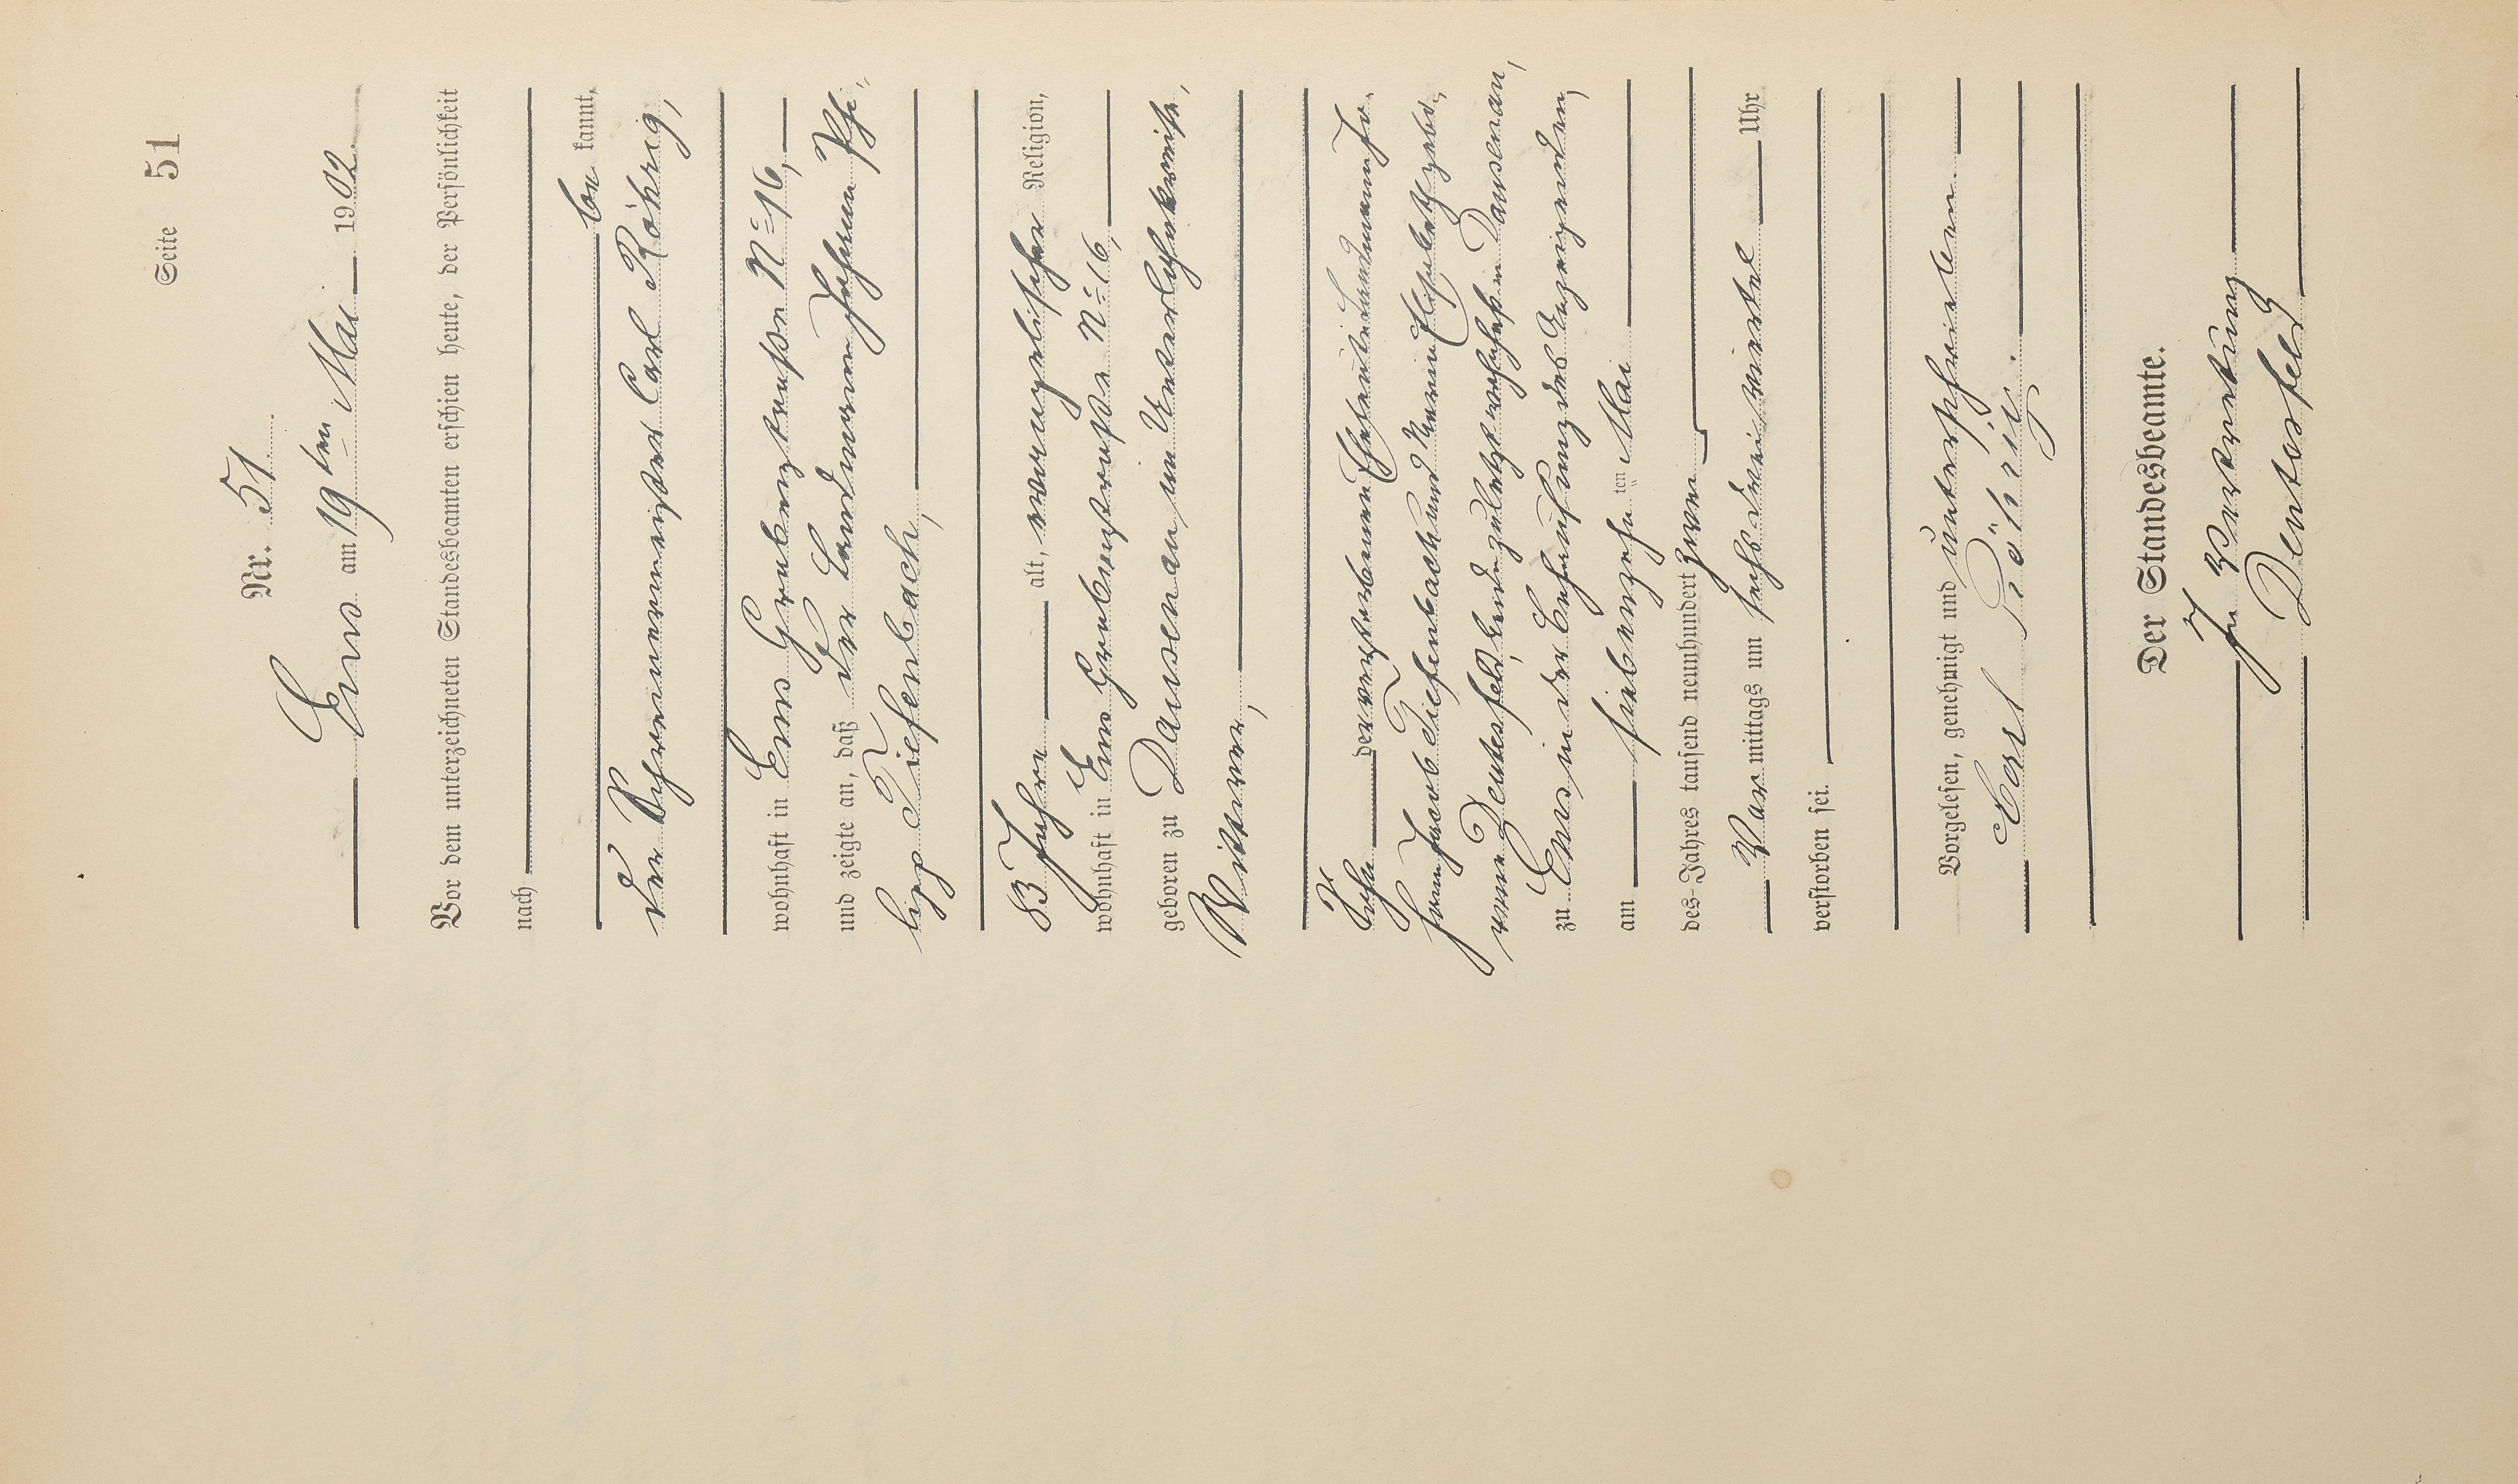 Seite 51
Nr. 51.
Ems am 19ten Mai 1902.
Vor dem unterzeichneten Standesbeamten erschien heute, der Persönlichkeit
nach
be kannt,
der Schreinermeister Carl Röhrig,
wohnhaft in Ems Grabenstraße No 16,
und zeigte an, daß der Landmann Johann Phi-
lipp Tiefenbach,
83 Jahre alt, evangelischer Religion,
wohnhaft in Ems Grabenstraße No 16,
geboren zu Dausenau im Unterlahnkreise,
Wittwer,
Sohn der verstorbenen Eheleute Landmann Jo-
hann Jacob Tiefenbach und Maria Elisabeth gebo-
rene Deutesfeld, beide zuletzt wohnhaft in Dausenau,
zu Ems in der Behausung des Anzeigenden,
am siebenzehnten Mai
des Jahres tausend neunhundert zwei
Vor mittags um sechs drei viertel Uhr
verstorben sei.
Vorgelesen, genehmigt und unterschrieben.
Carl Röhrig.
Der Standesbeamte.
In Vertretung